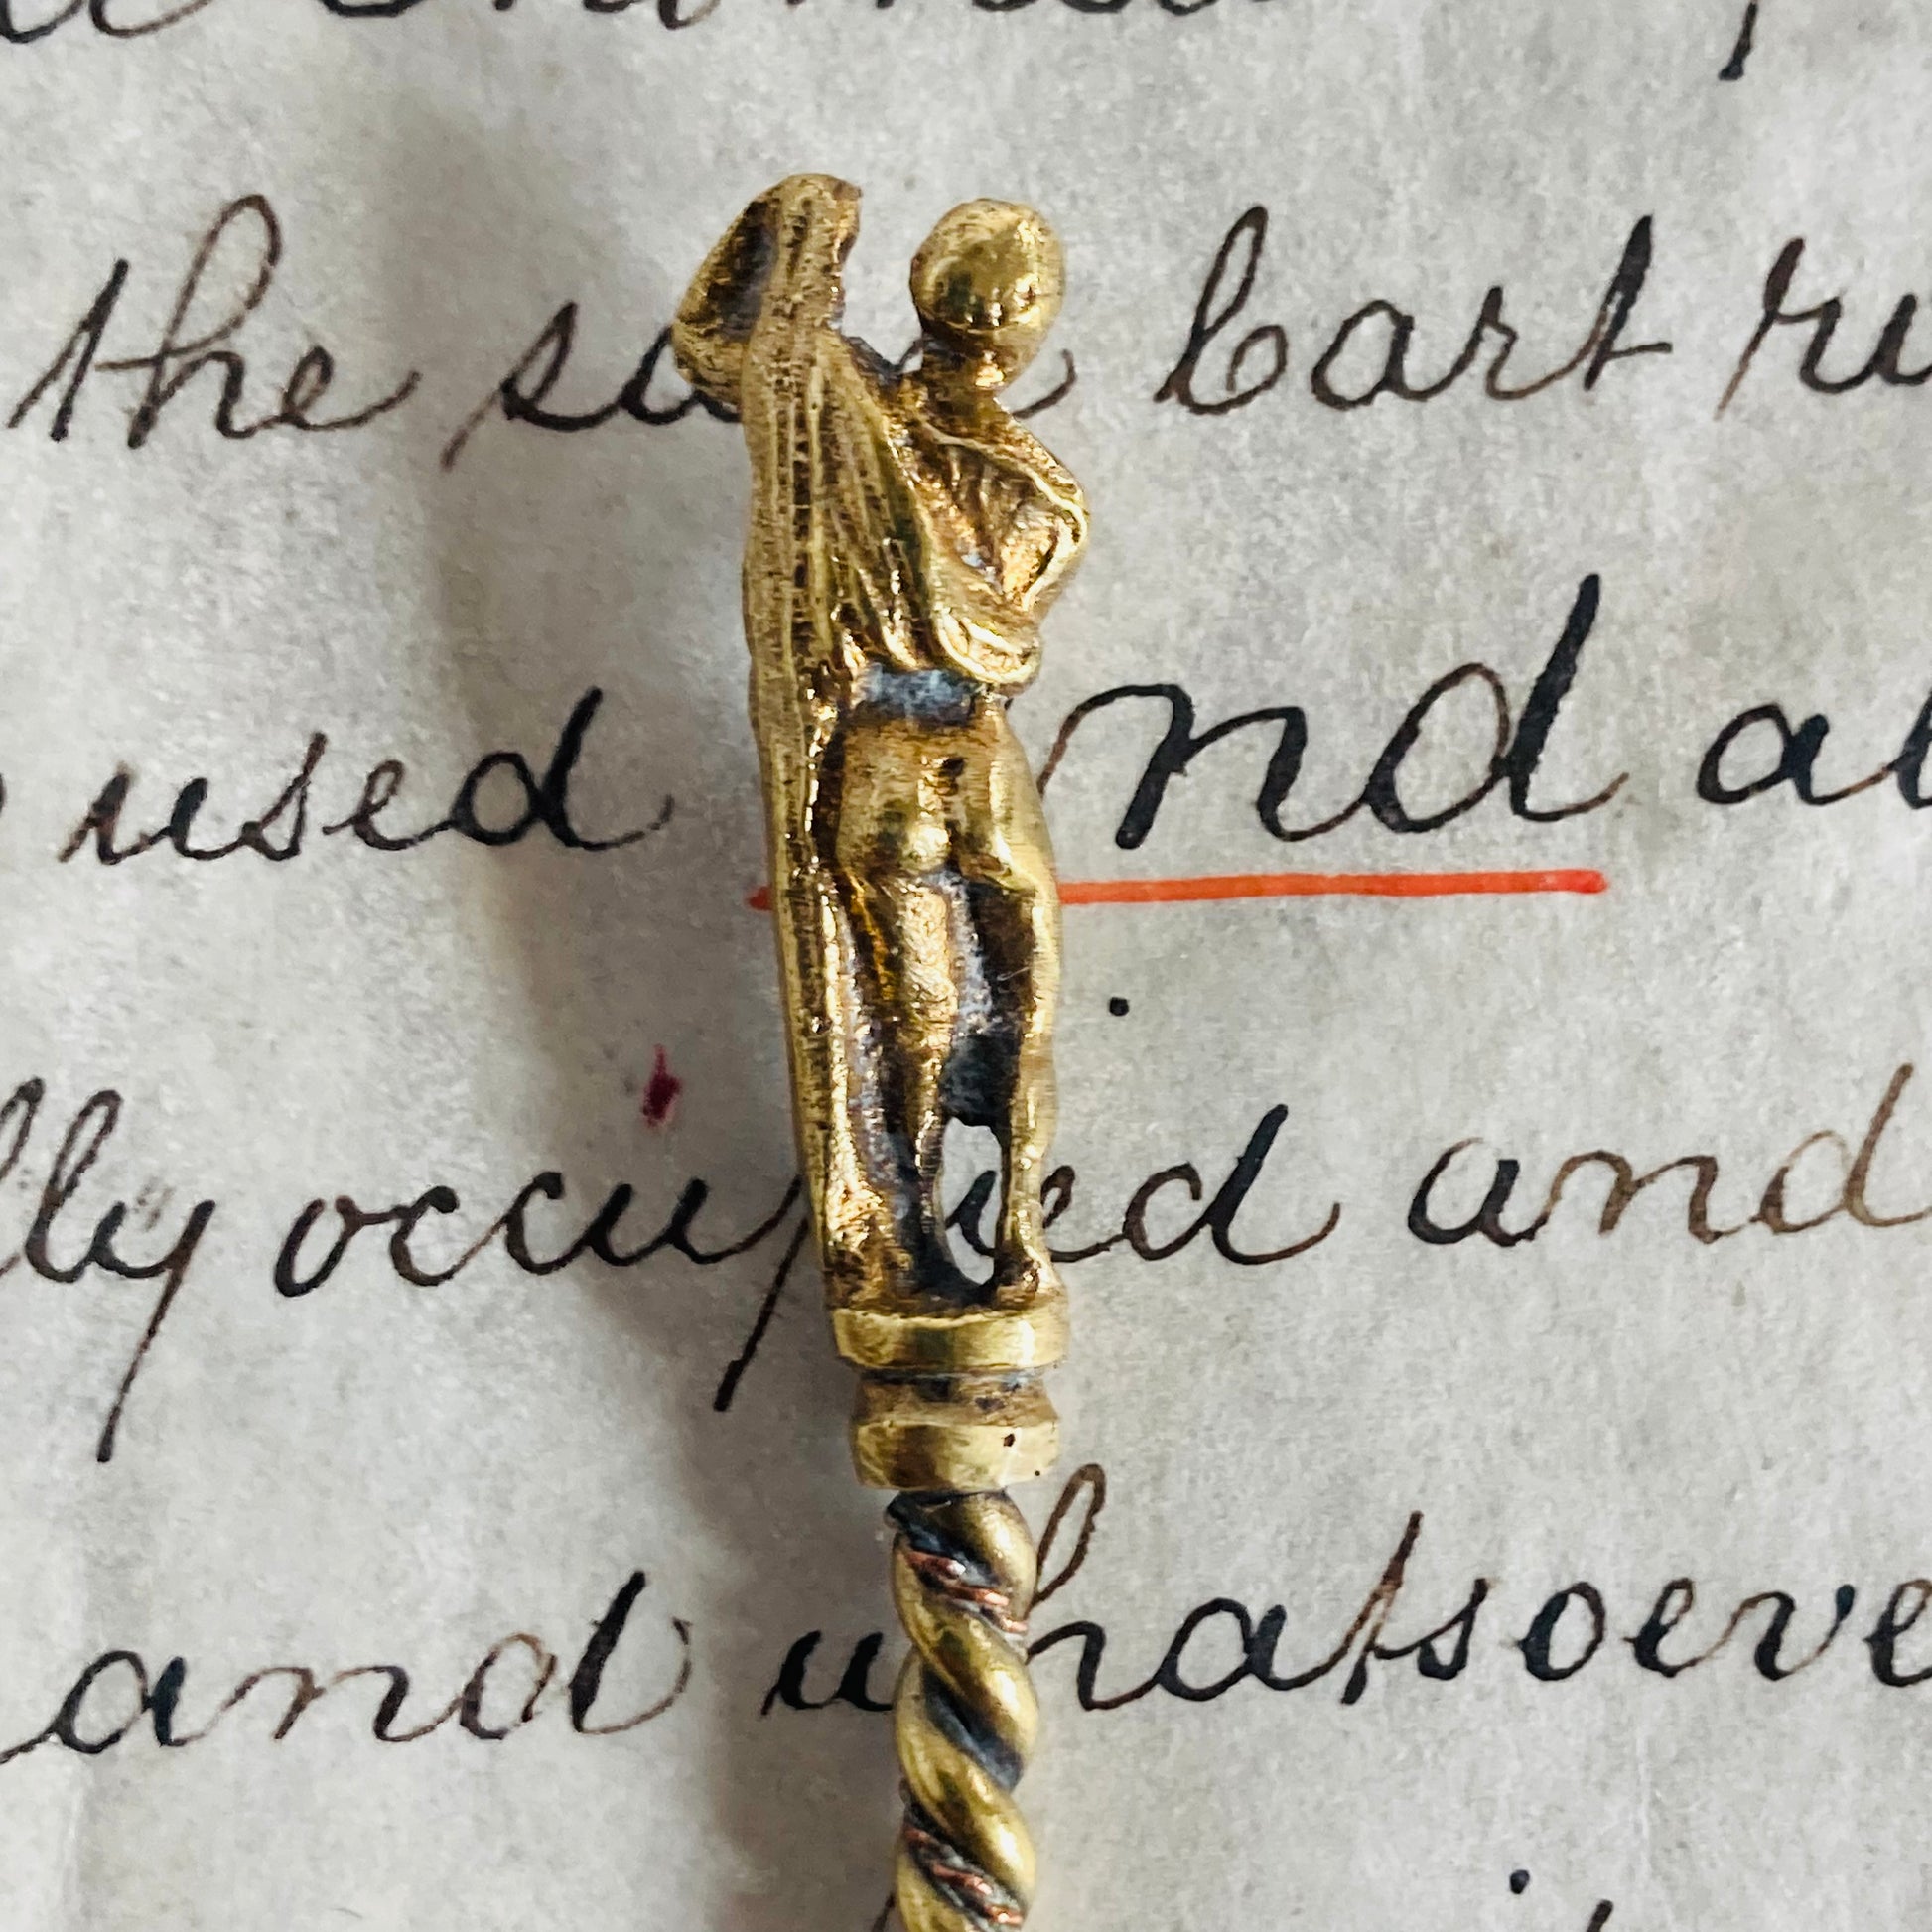 the sa cart ru
used nd al
lly occupied and
and whatsoeve